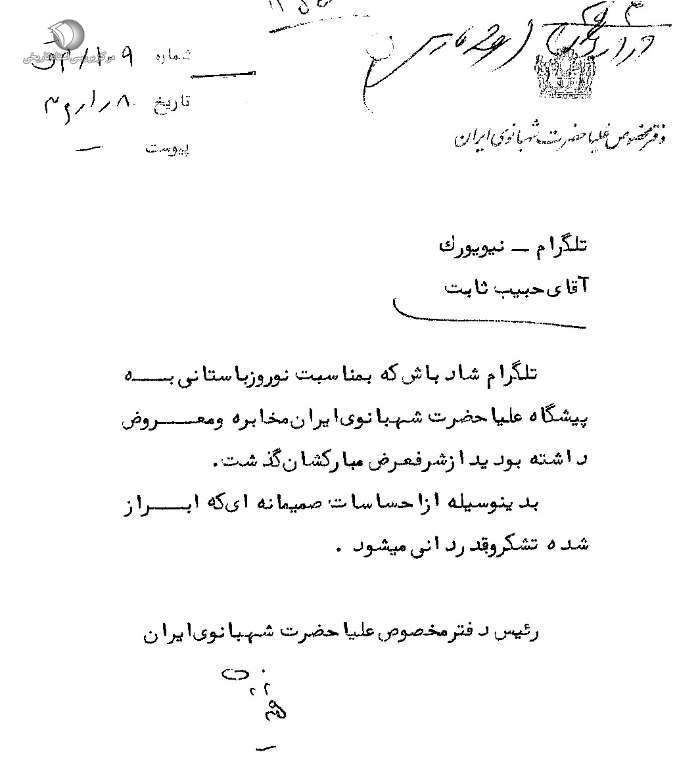 مرکز بررسی اسناد تاریخی
شماره
تاریخ
پیوست —
دفتر مخصوص علیاحضرت شهبانوی ایران
تلگرام — نیویورك
آقای حبیب ثابت
تلگرام شاد باش که بمناسبت نوروز باستانی بــه
پیشگاه علیاحضرت شهبانوی ایران مخابره و معــروض
داشته بودید از شرفعرض مبارکشان گذشت.
بدینوسیله از احساسات صمیمانه ای که ابــراز
شده تشکر و قدردانی میشود .
رئیس دفتر مخصوص علیاحضرت شهبانوی ایران